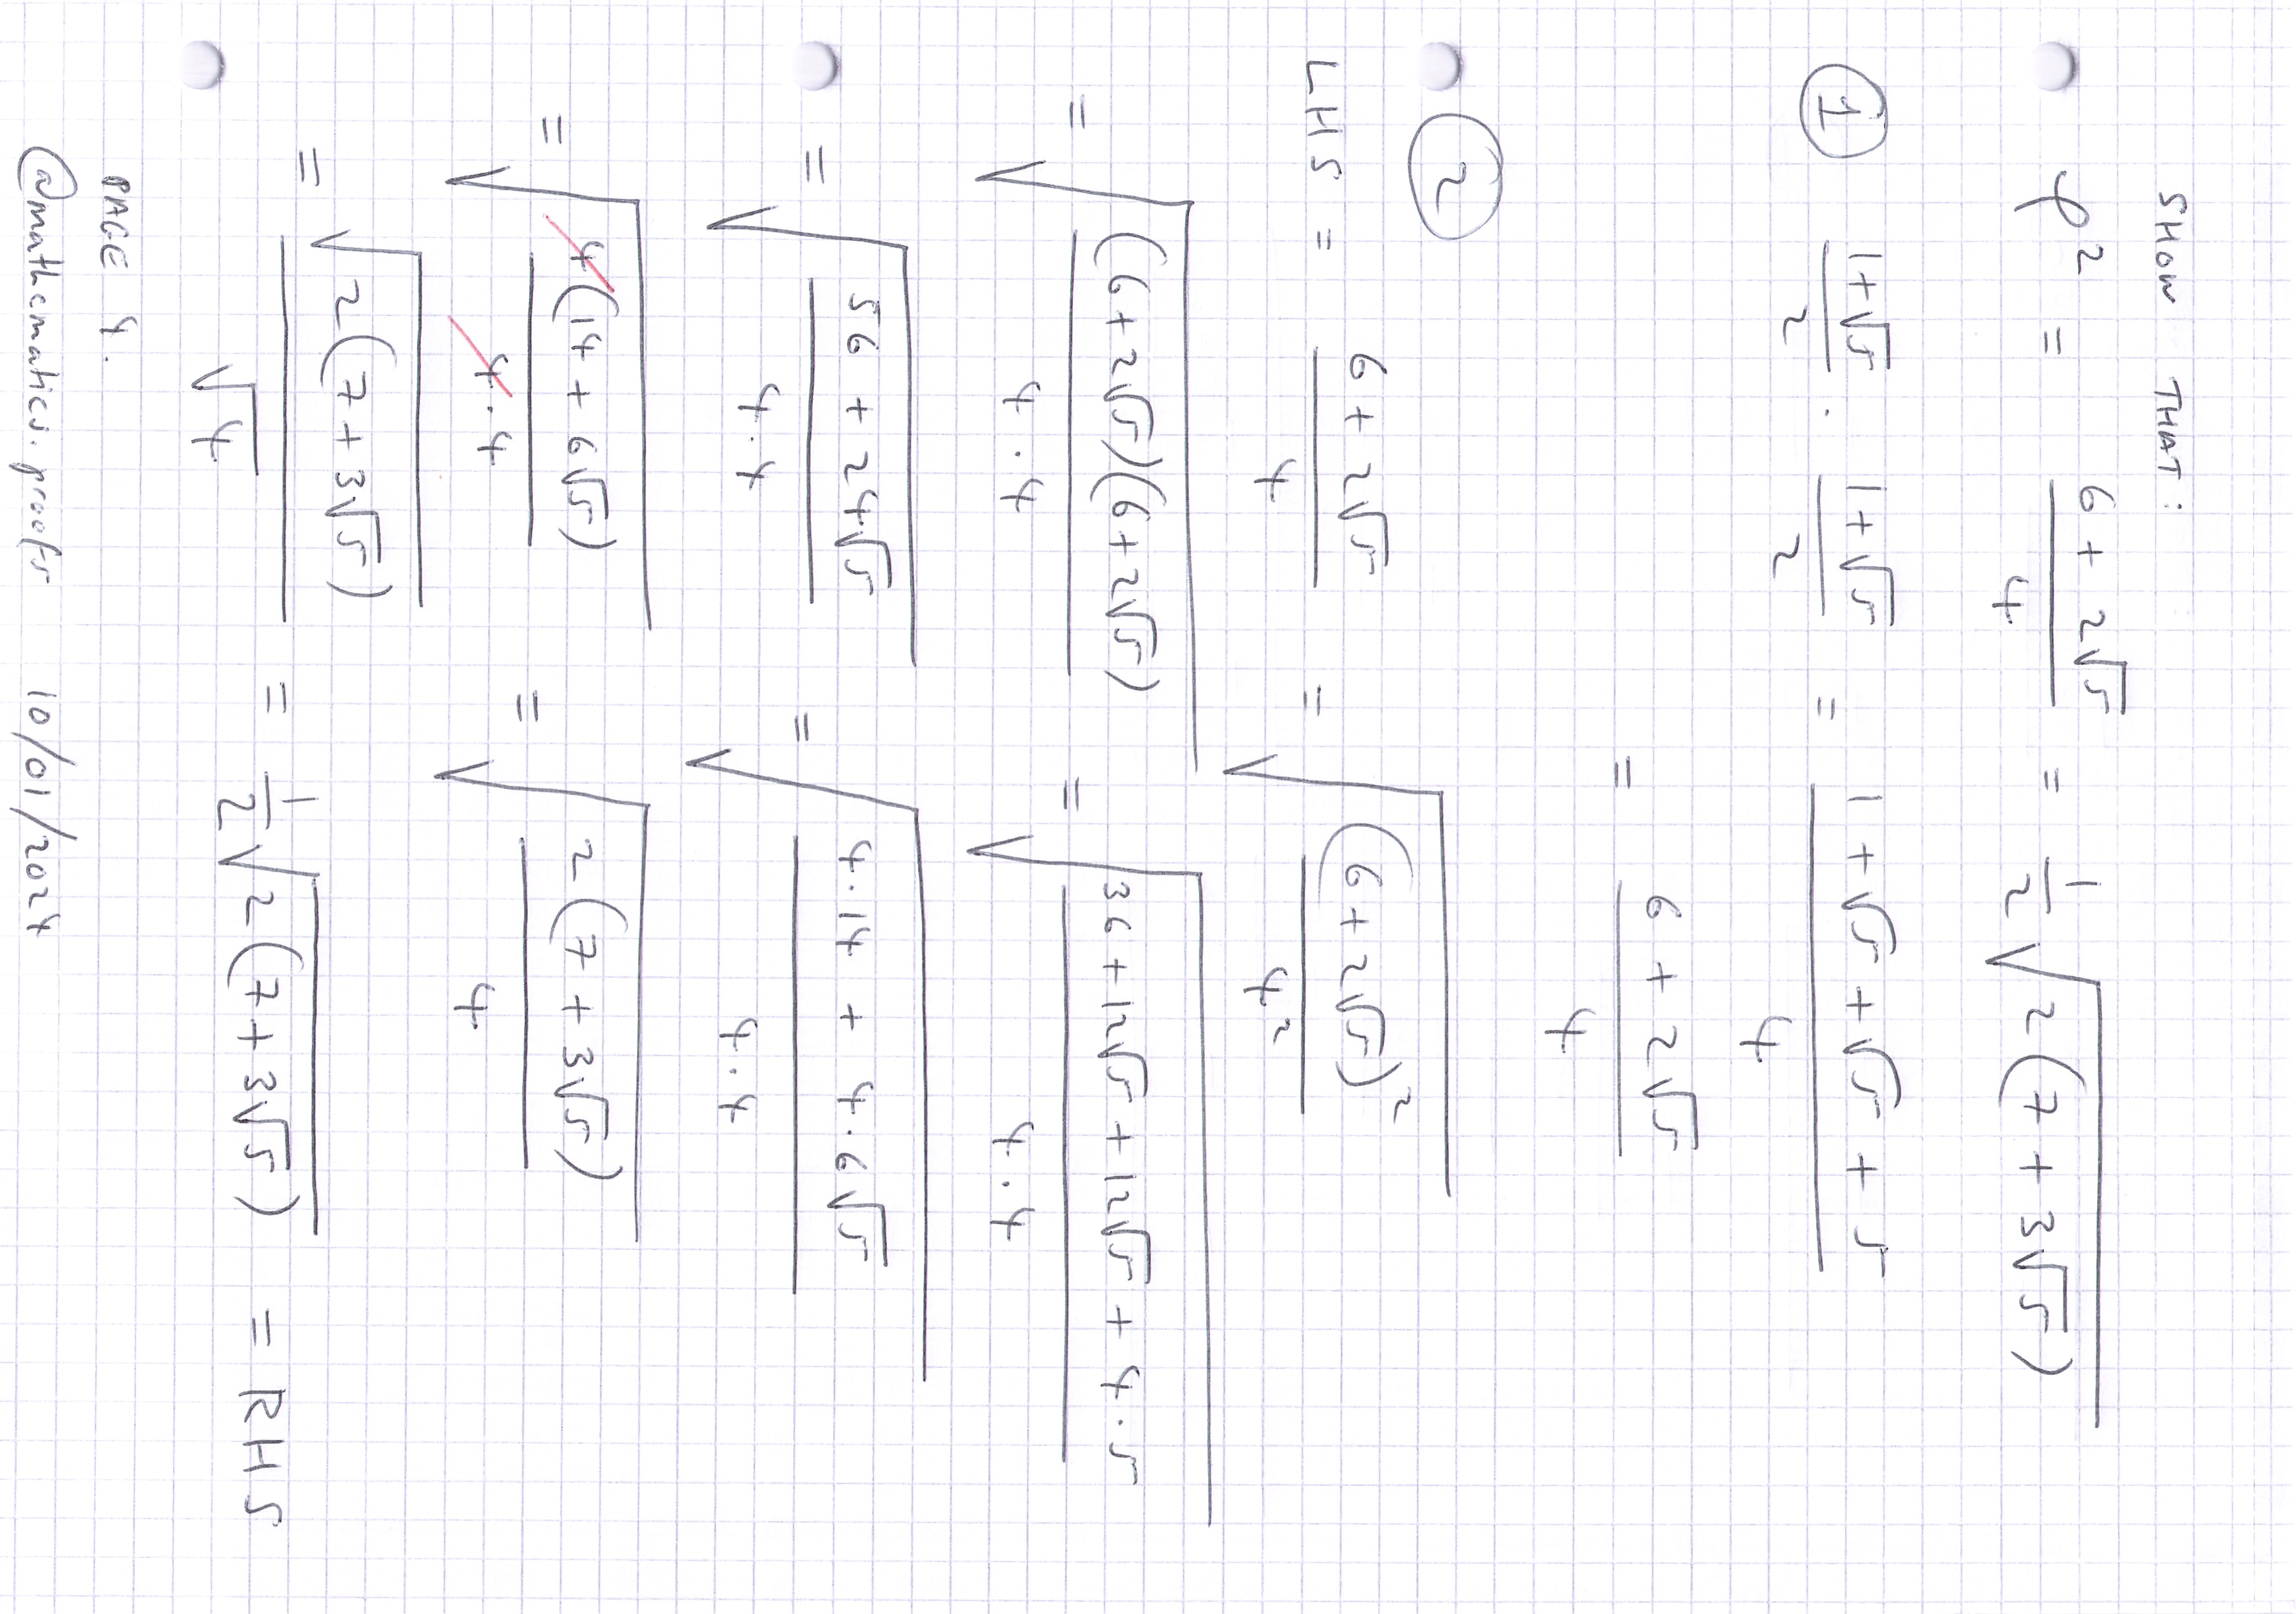 SHOW THAT:
φ² = (6 + 2√5)/4 = 1/2 √(2(7 + 3√5))
① (1+√5)/2 · (1+√5)/2 = (1 + √5 + √5 + 5)/4
= (6 + 2√5)/4
②
LHS = (6 + 2√5)/4 = √((6+2√5)²/4²)
= √((6+2√5)(6+2√5)/(4·4)) = √((36+12√5+12√5+4·5)/(4·4))
= √((56 + 24√5)/(4·4)) = √((4·14 + 4·6√5)/(4·4))
= √(4(14+6√5)/(4·4)) = √(2(7+3√5)/4)
= √(2(7+3√5))/√4 = 1/2 √(2(7+3√5)) = RHS
PAGE 4.
@mathematics.proofs 10/01/2024